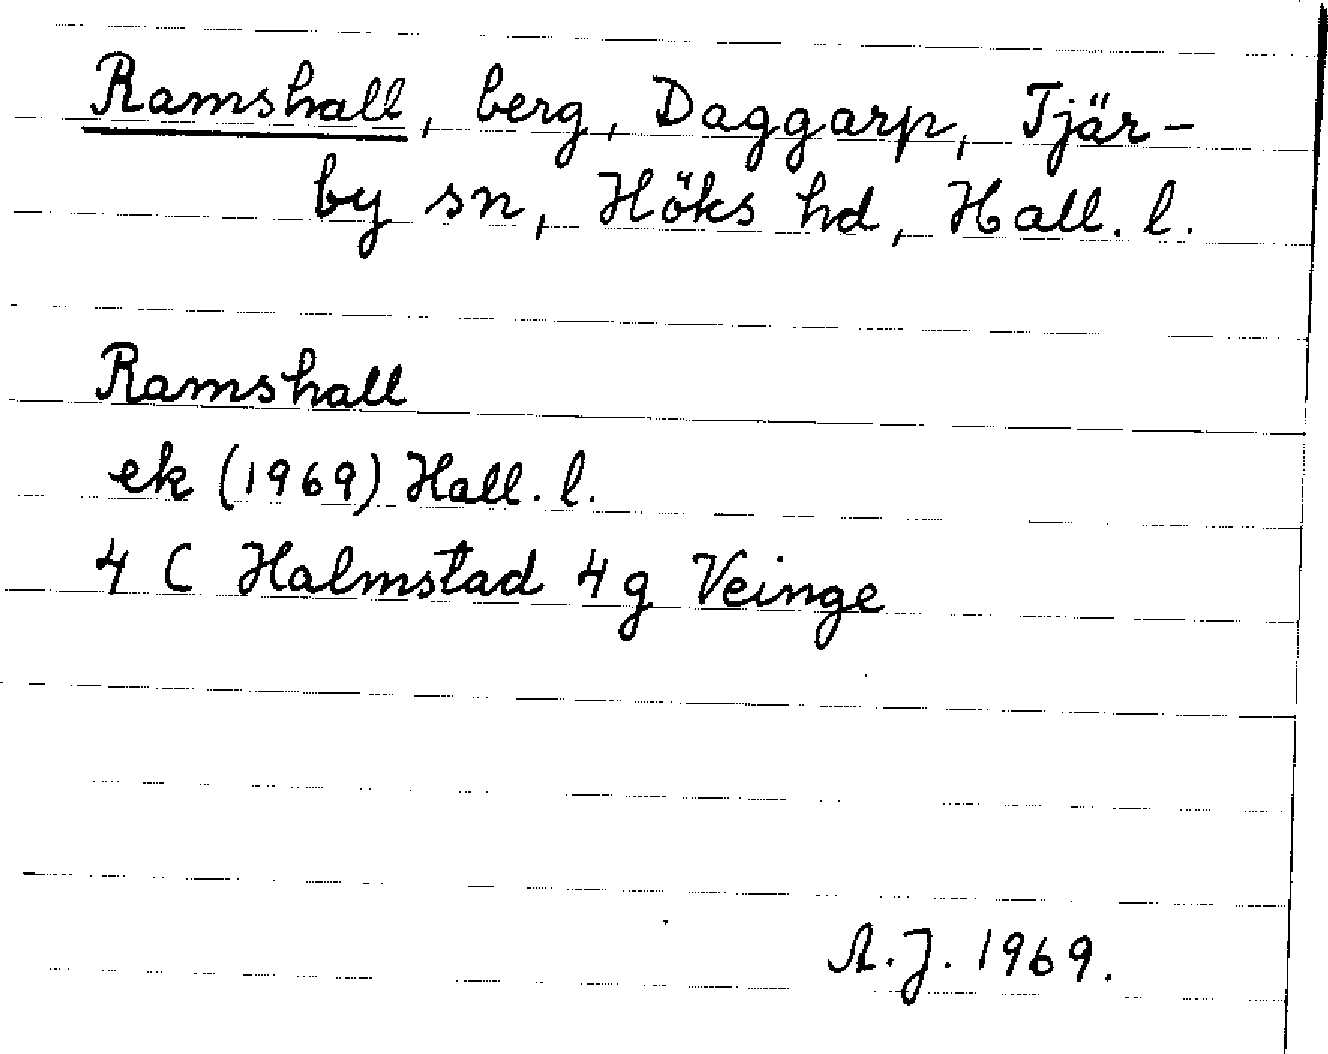 Ramshall, berg, Daggarp, Tjär-
by sn, Höks hd, Hall. l.
Ramshall
ek (1969) Hall. l.
4 C Halmstad 4 g Veinge
A. J. 1969.